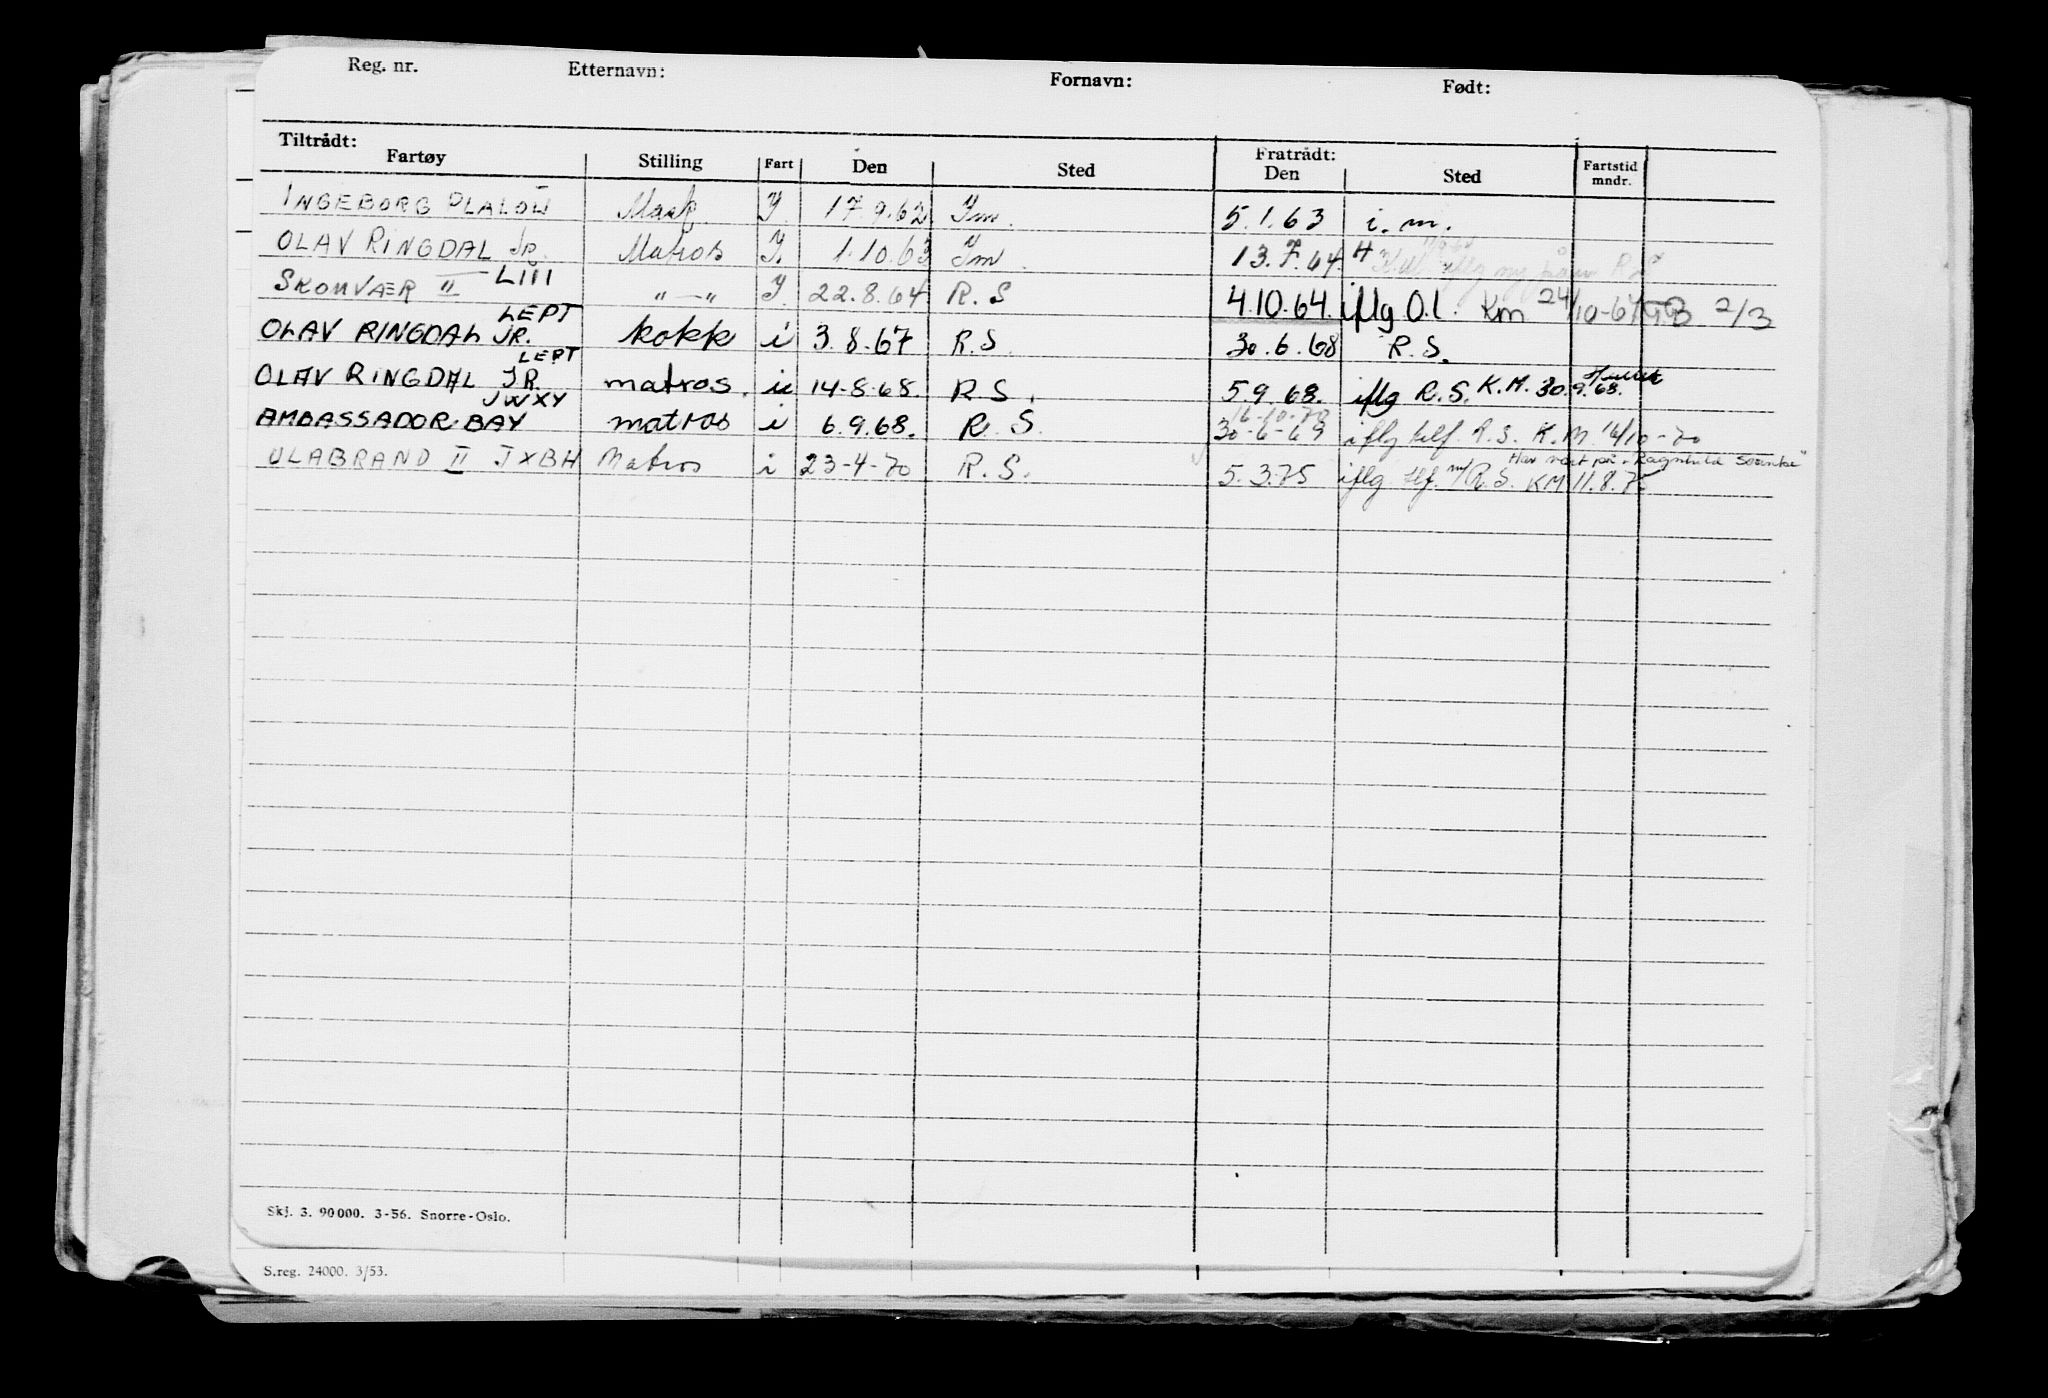 Reg. nr. Etternavn: Fornavn: Født:
Tiltrådt: Fratrådt:
Fartøy Stilling Fart Den Sted Den Sted Fartstid mndr.
INGEBORG PLATOU Y 17.9.62 Ym. 5.1.63 i. m.
OLAV RINGDAL JR. Matros Y. 1.10.63 Ym. 13.7.64.
SKOMVÆR II LIII " — " Y 22.8.64 R. S 4.10.64. iflg O.l. Km 24/10-64 2/3
OLAV RINGDAL JR. LEPT kokk i 3.8.67 R.S. 30.6.68 R.S.
OLAV RINGDAL JR. LEPT matros. u 14-8-68. R S. 5 9. 68. iflg R.S. K.M. 30.9.68.
AMBASSADOR BAY JWXY matros i 6.9.68. R. S. 16-10-70 30-6-69 iflg telf. R.S. K.M. 16/10-70
ULABRAND II JXBH Matros i 23-4-70 R.S. 5.3.75 iflg. tlf. m/R.S. KM 11.8.75 Har vært på "Ragnhild Brøvig"
Skj. 3. 90000. 3-56. Snorre-Oslo.
S.reg. 24000. 3/53.